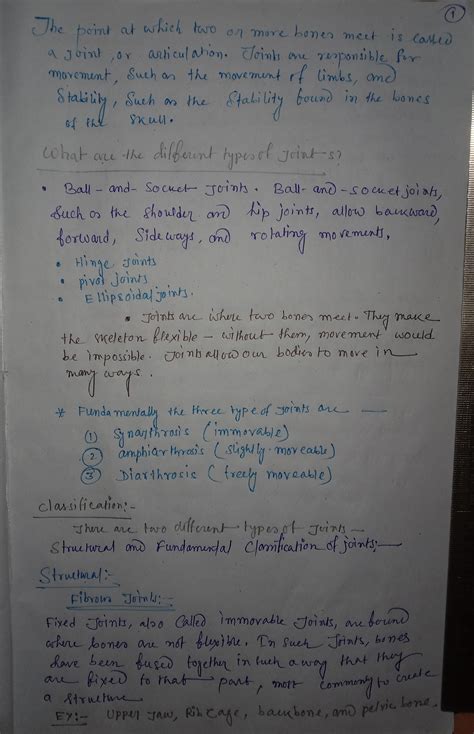 1
The point at which two or more bones meet is called
a Joint, or articulation. Joints are responsible for
movement, Such as the movement of limbs, and
Stability, Such as the Stability found in the bones
of the skull.
What are the different types of Joint-s?
• Ball-and-Socket Joints. Ball-and-socket joints,
Such as the shoulder and hip joints, allow backward,
forward, Sideways, and rotating movements.
• Hinge Joints
• pivot Joints
• Ellipsoidal joints.
• Joints are where two bones meet. They make
the skeleton flexible – without them, movement would
be impossible. Joints allow our bodies to move in
many ways.
* Fundamentally the three type of Joints are —
① Synarthrosis (immovable)
② amphiarthrosis (slightly-moveable)
③ Diarthrosis (freely moveable)
Classification:-
There are two different types of Joints –
Structural and Fundamental Classification of joints:-
Structural:-
Fibrous Joints:-
Fixed Joints, also Called immovable Joints, are found
where bones are not flexible. In Such Joints, bones
have been fused together in such a way that they
are fixed to that part, most commonly to create
a structure
EX:- Upper Jaw, Rib Cage, backbone, and pelvic bone.